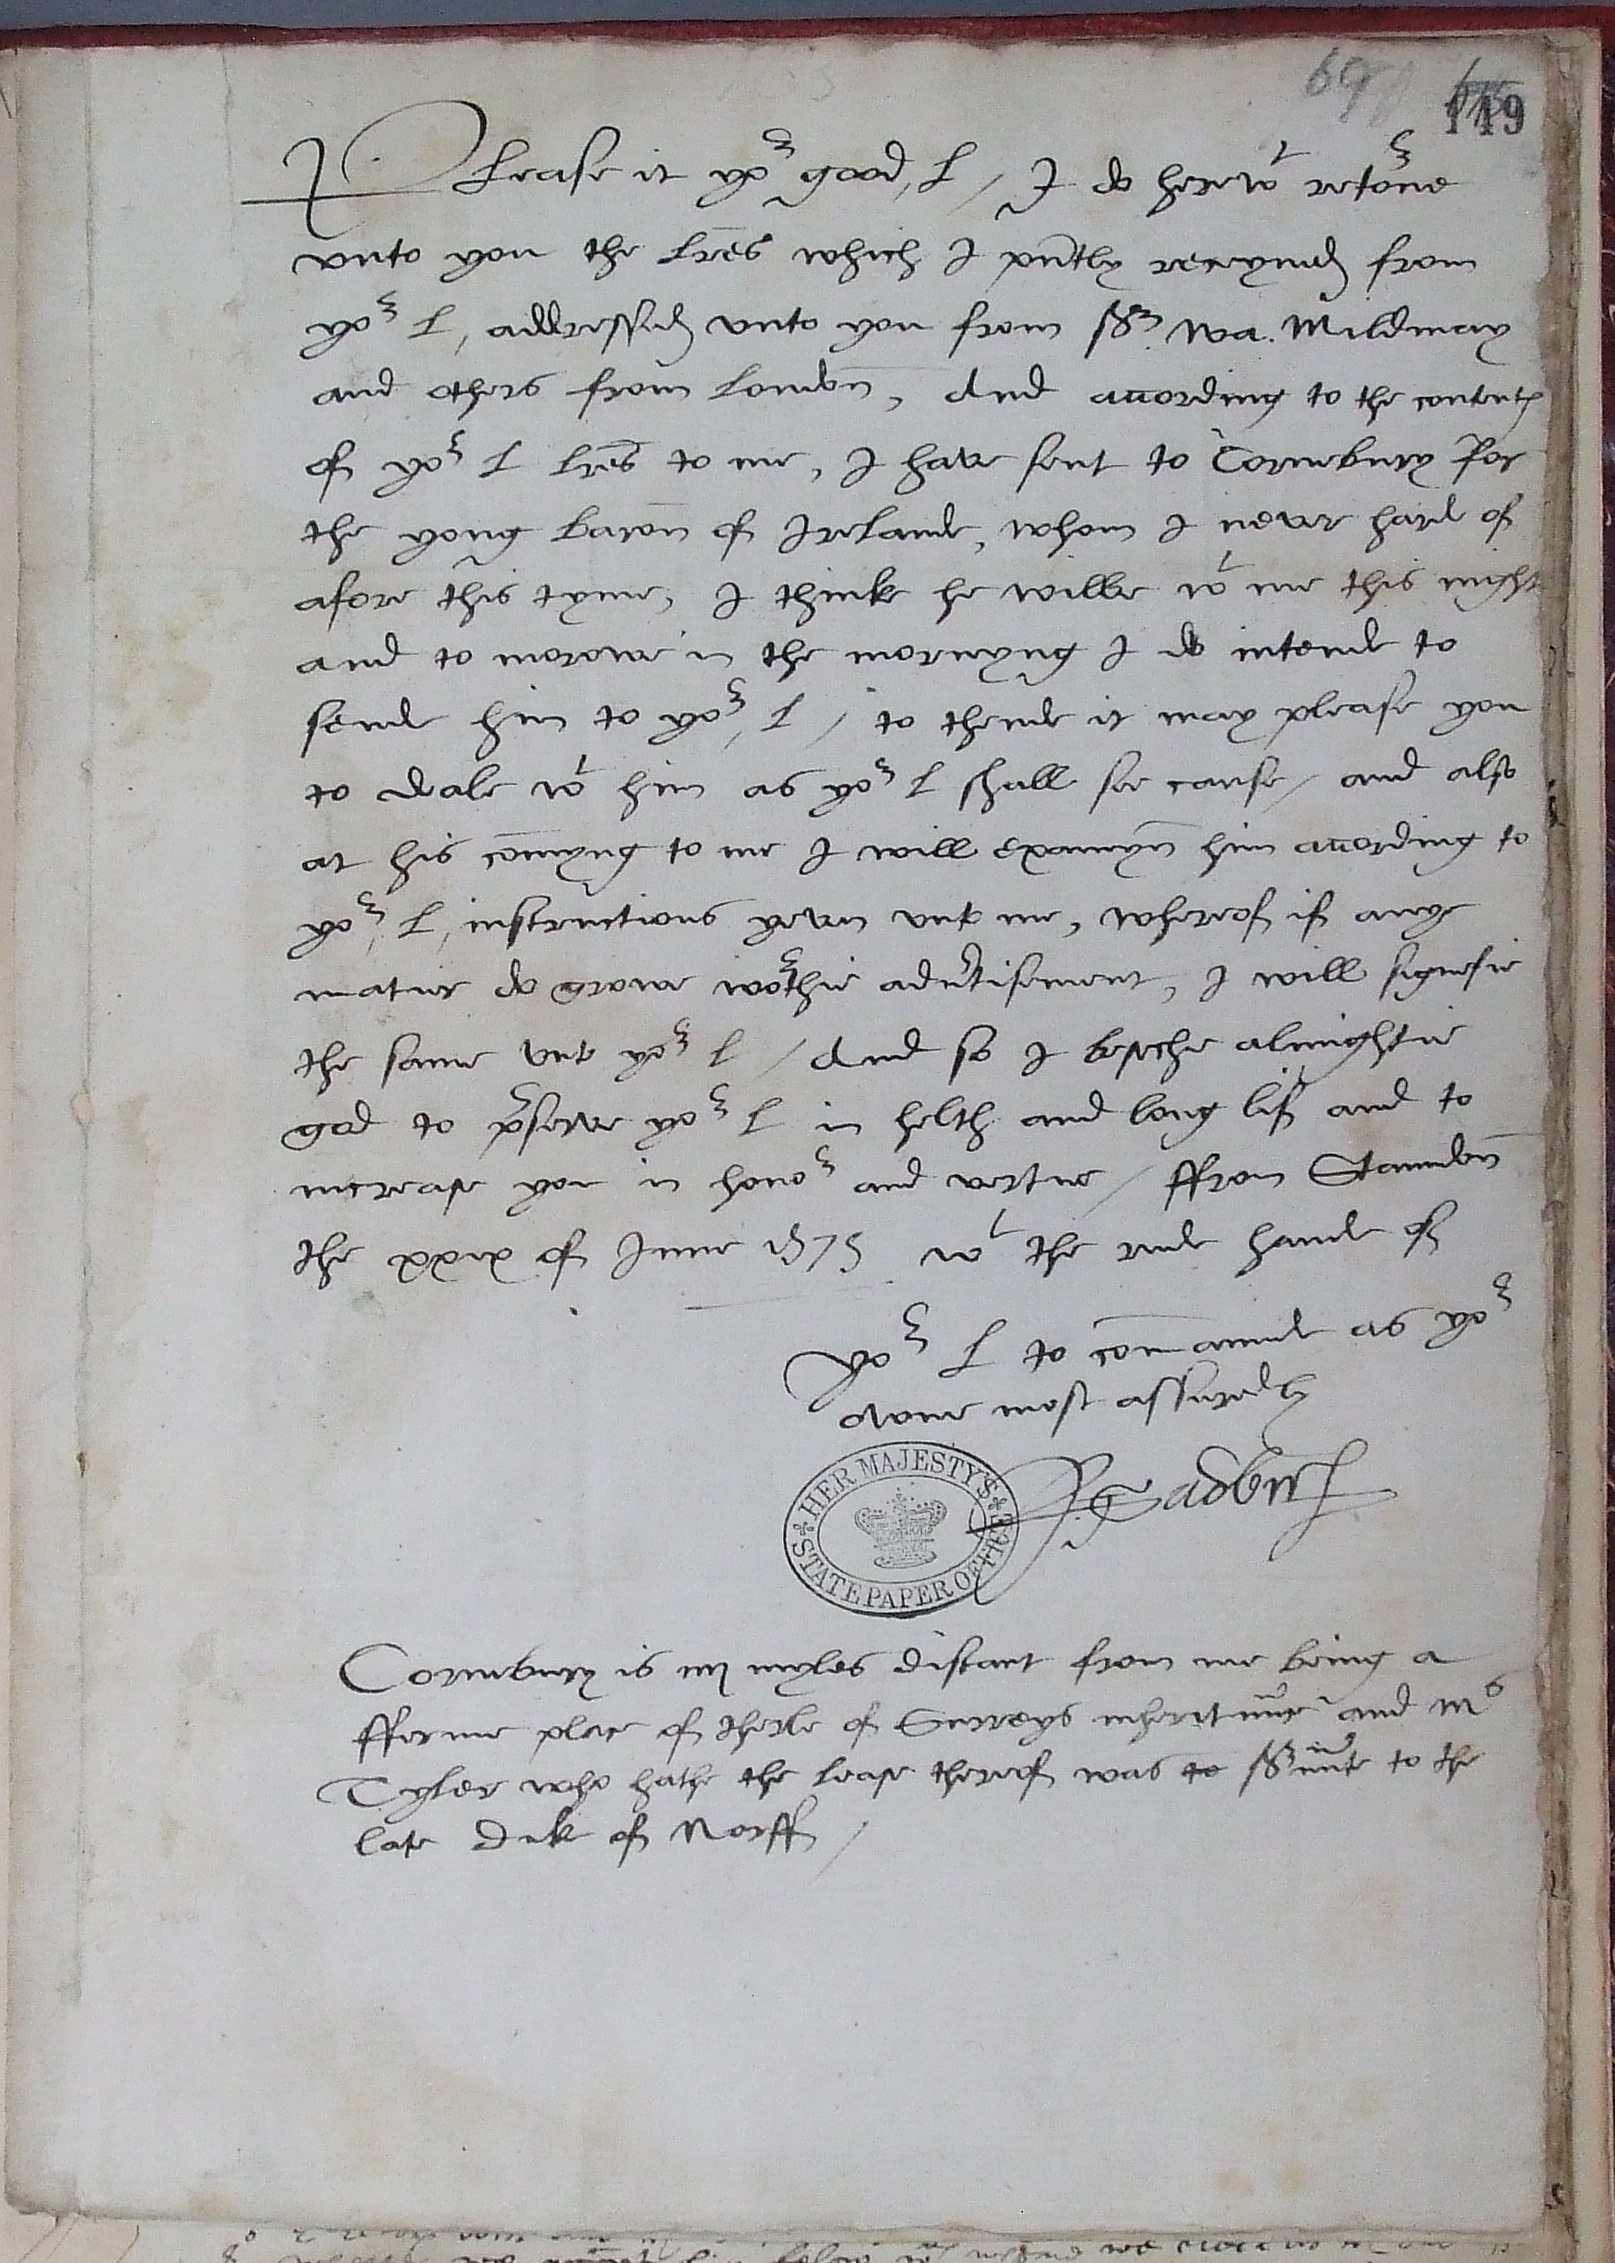 69
149
Please it yor good L / I do herewt retorne
vnto you the lres which I pntly receyued from
yor L, addressed vnto you from Sr. Wa. Mildmay
and others from London, And according to the contentes
of yor L lres to me, I have sent to Cornebury for
the yong baron of Irelande, whom I never hard of
afore this tyme, I think he wilbe wt me this night
and to morowe in the mornyng I do intende to
sende him to yor L / to thende it may please you
to deale wt him as yor L shall see cause / and also
at his comyng to me I will examyn him according to
yor L, instructions yeven vnto me, whereof if anye
matier do growe worthie advtisement, I will signefie
the same vnto yor L / And so I beseche almightie
god to pserve yor L in helth and long lif and to
increase you in honor and vertue / ffrom Standon
the xxix of June 1575 wt the rude hande of
Yor L to comaunde as yor
owne most assuredly
R Sadleir
HER MAJESTY'S STATE PAPER OFFICE
Cornebury is iiij myles distant from me being a
fferme place of therle of Surreys inheritunce and Mr
Tyler who hathe the lease thereof was to Sruante to the
late Duke of Norff /